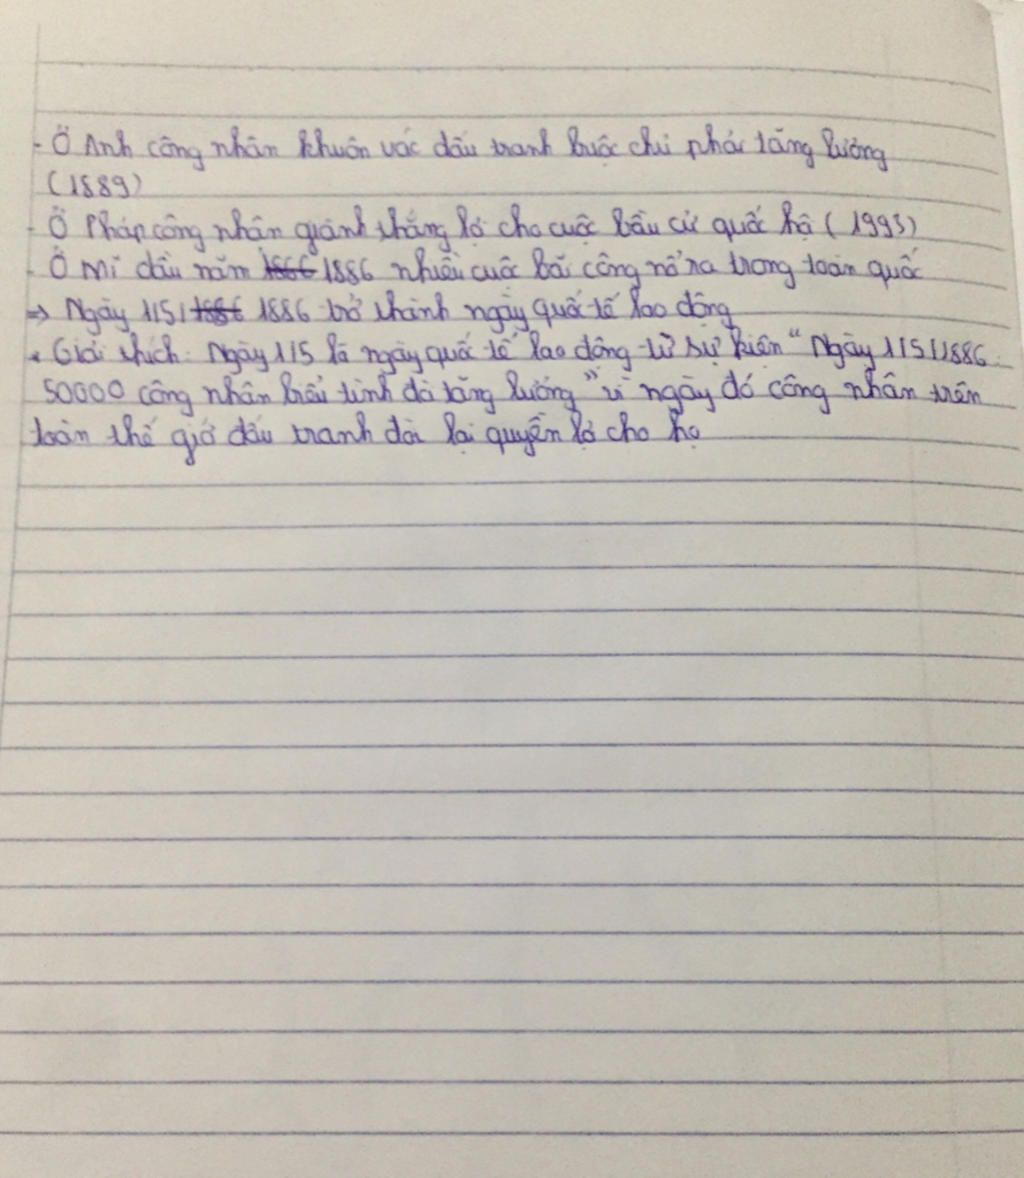 - Ở Anh công nhân khuôn vác đấu tranh buộc chi phải tăng lương
(1889)
- Ở Pháp công nhân giành thắng lợi cho cuộc bầu cử quốc hội (1993)
- Ở mĩ đầu năm 1886 nhiều cuộc bãi công nổ ra trong toàn quốc
=> Ngày 1/5/1886 trở thành ngày quốc tế lao động
* Giải thích: Ngày 1/5 là ngày quốc tế lao động từ sự kiện "Ngày 1/5/1886
50000 công nhân biểu tình đòi tăng lương" vì ngày đó công nhân trên
toàn thế giớ đấu tranh đòi lại quyền lợi cho họ